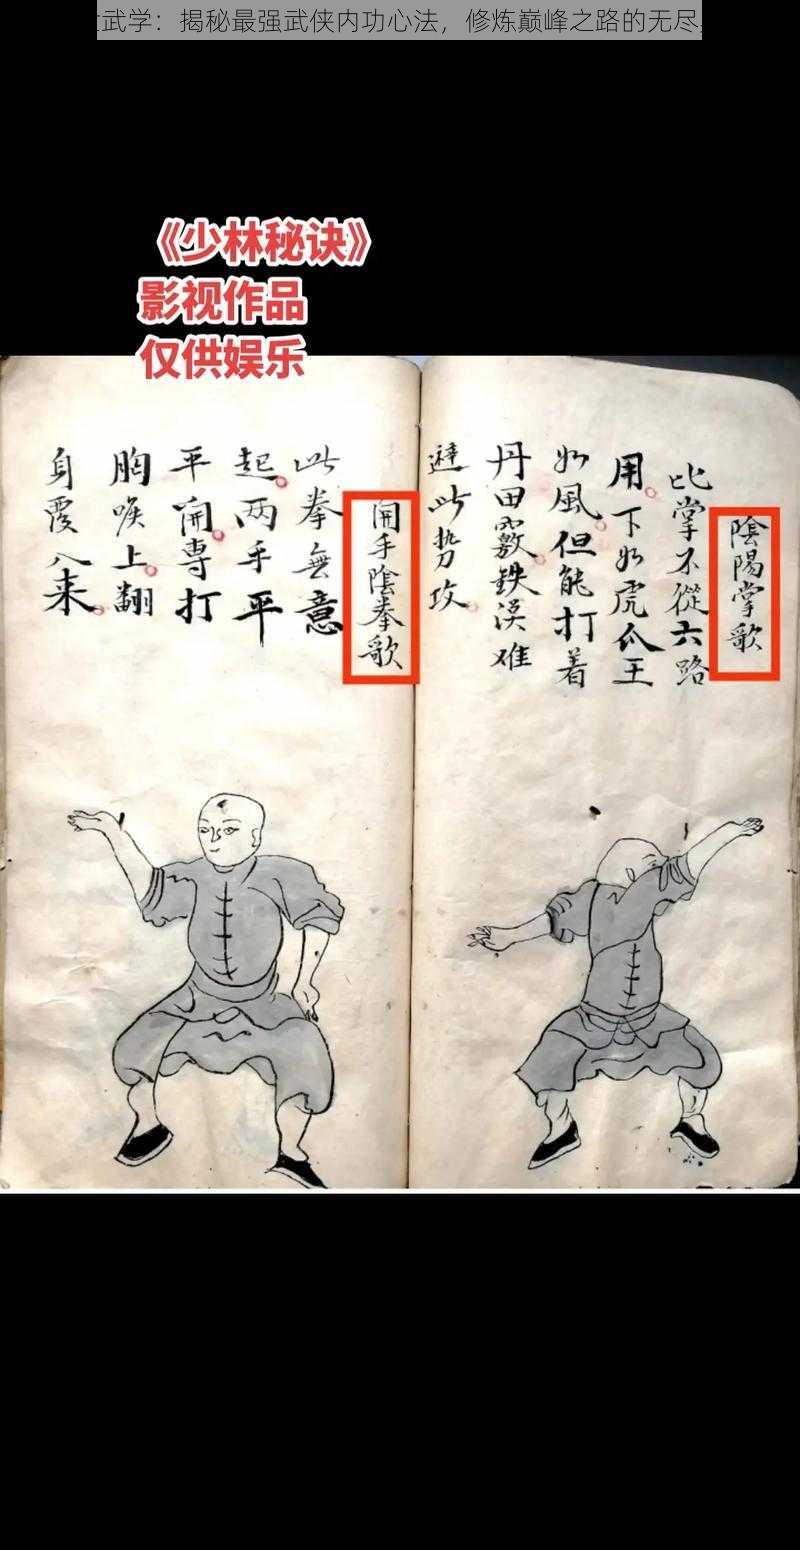 武学：揭秘最强武侠内功心法，修炼巅峰之路的无尽
《少林秘诀》
影视作品
仅供娱乐
陰陽掌歌
此掌不從六路
用下如虎爪王
如風但能打着
丹田竅鉄漢难
避此势攻
開手陰拳歌
此拳無意
起两手平
平開專打
胸喉上翻
身覆入来